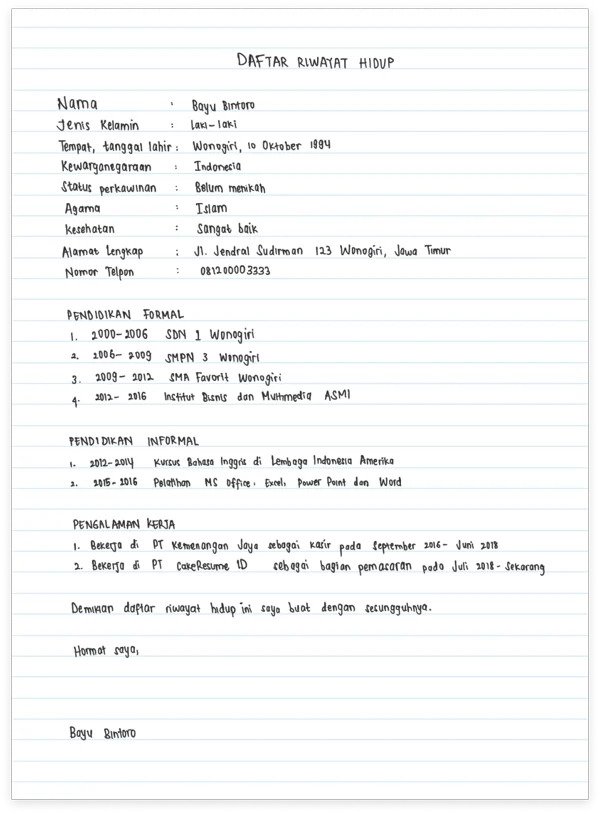 DAFTAR RIWAYAT HIDUP
Nama : Bayu Bintoro
Jenis Kelamin : Laki-laki
Tempat, tanggal lahir : Wonogiri, 10 Oktober 1994
Kewarganegaraan : Indonesia
Status perkawinan : Belum menikah
Agama : Islam
Kesehatan : Sangat baik
Alamat Lengkap : Jl. Jendral Sudirman 123 Wonogiri, Jawa Timur
Nomor Telpon : 081200003333
PENDIDIKAN FORMAL
1. 2000-2006 SDN 1 Wonogiri
2. 2006-2009 SMPN 3 Wonogiri
3. 2009-2012 SMA Favorit Wonogiri
4. 2012-2016 Institut Bisnis dan Multimedia ASMI
PENDIDIKAN INFORMAL
1. 2012-2014 Kursus Bahasa Inggris di Lembaga Indonesia Amerika
2. 2015-2016 Pelatihan MS Office: Excel, Power Point dan Word
PENGALAMAN KERJA
1. Bekerja di PT Kemenangan Jaya sebagai kasir pada September 2016-Juni 2018
2. Bekerja di PT CakeResume ID sebagai bagian pemasaran pada Juli 2018-Sekarang
Demikian daftar riwayat hidup ini saya buat dengan sesungguhnya.
Hormat saya,
Bayu Bintoro